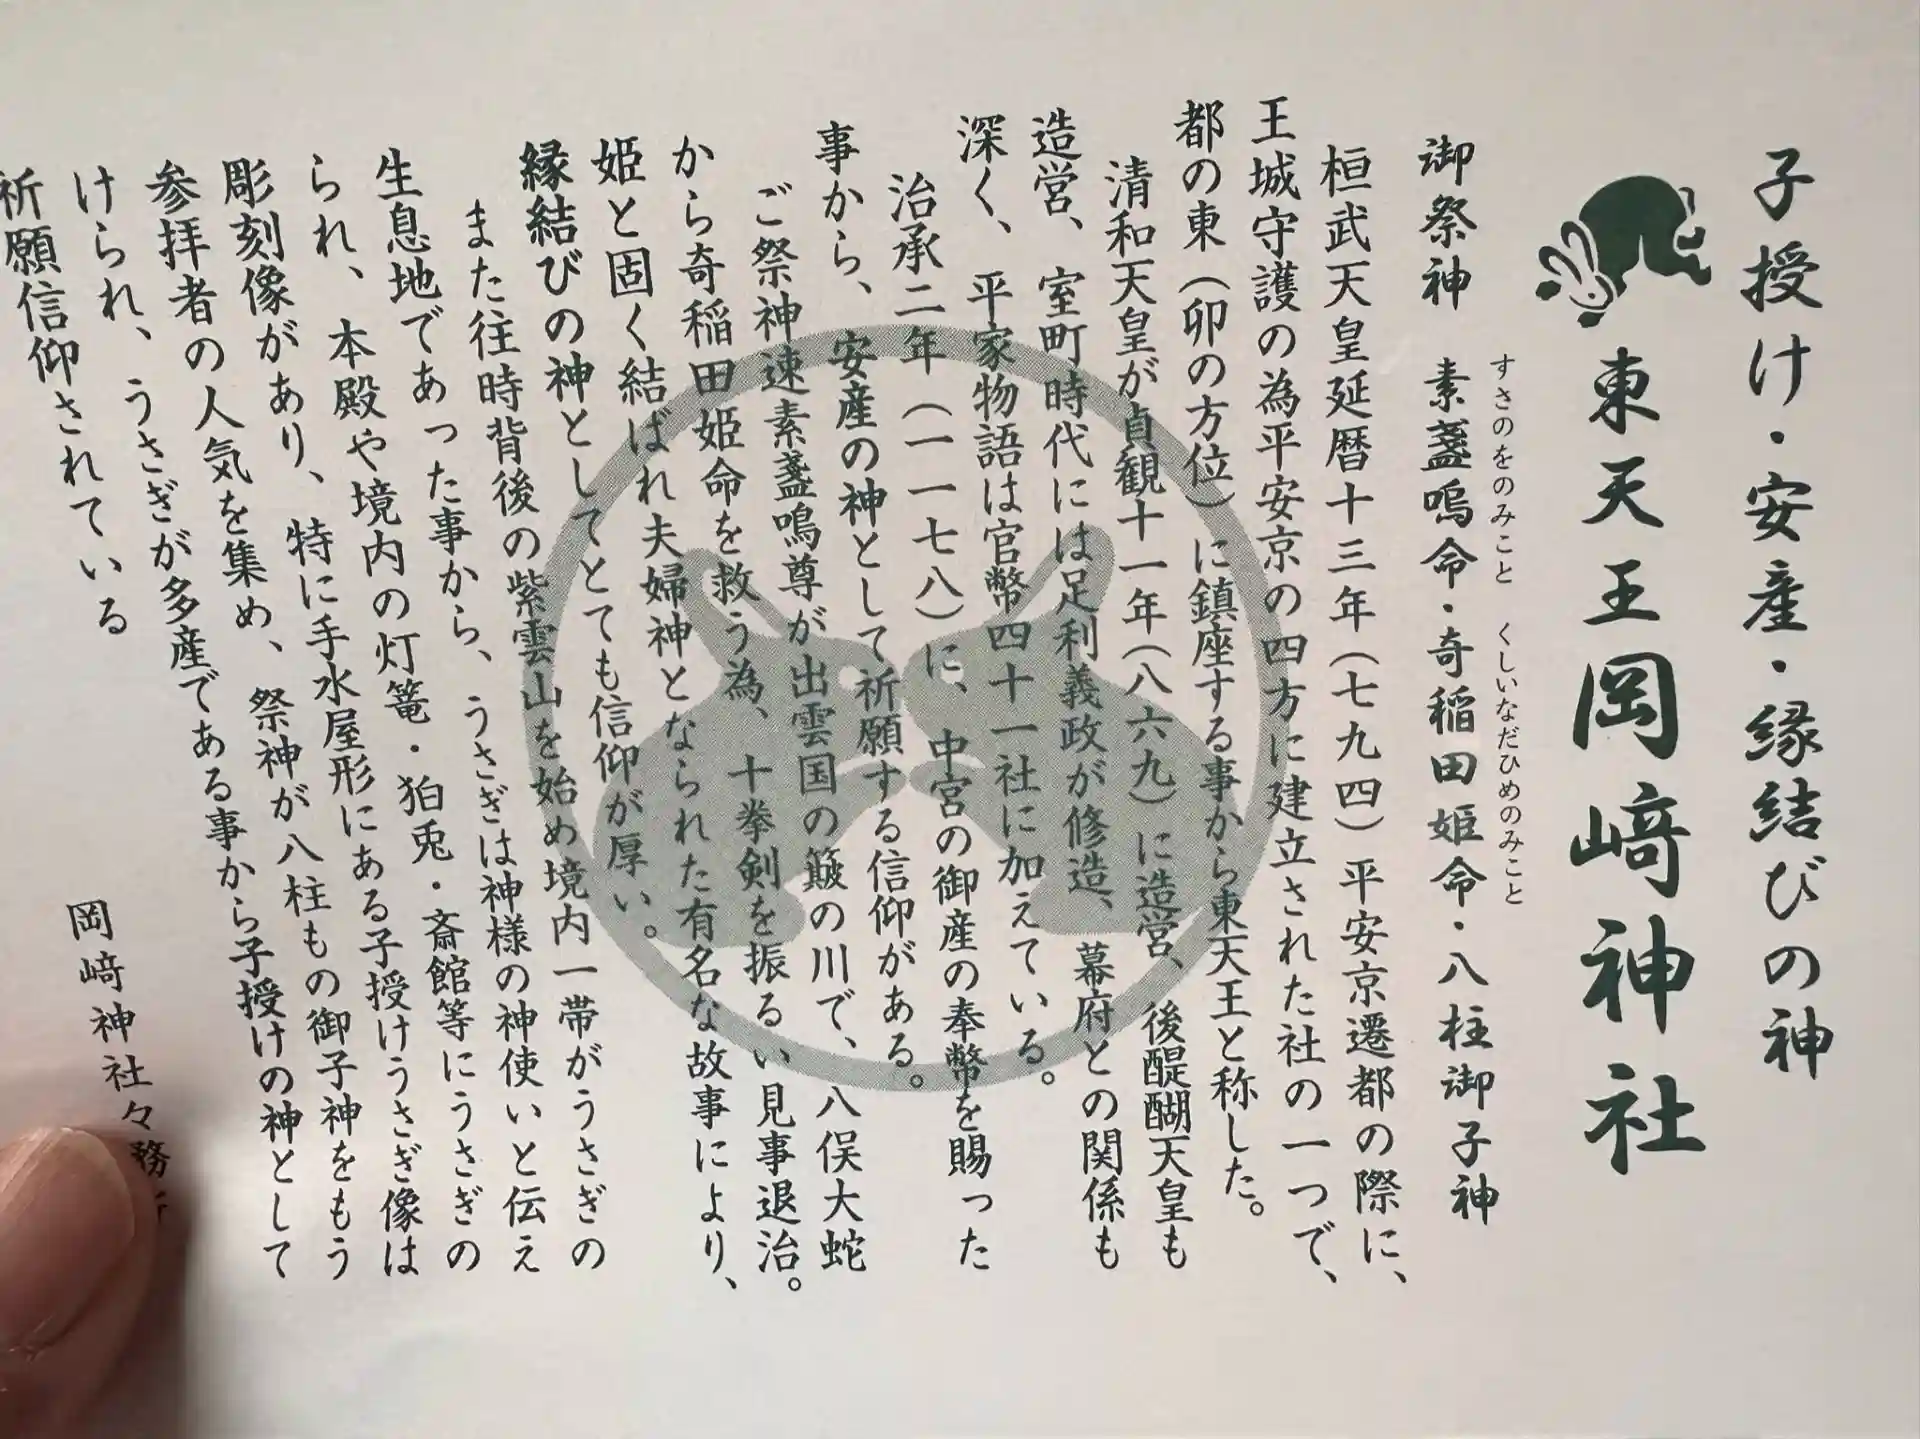 子授け・安産・縁結びの神
東天王岡﨑神社
すさのをのみこと くしいなだひめのみこと
御祭神 素盞嗚命・奇稲田姫命・八柱御子神
桓武天皇延暦十三年(七九四)平安京遷都の際に、
王城守護の為平安京の四方に建立された社の一つで、
都の東(卯の方位)に鎮座する事から東天王と称した。
清和天皇が貞観十一年(八六九)に造営、後醍醐天皇も
造営、室町時代には足利義政が修造、幕府との関係も
深く、平家物語は官幣四十一社に加えている。
治承二年(一一七八)に、中宮の御産の奉幣を賜った
事から、安産の神として祈願する信仰がある。
ご祭神速素盞鳴尊が出雲国の簸の川で、八俣大蛇
から奇稲田姫命を救う為、十拳剣を振るい見事退治。
姫と固く結ばれ夫婦神となられた有名な故事により、
縁結びの神としてとても信仰が厚い。
また往時背後の紫雲山を始め境内一帯がうさぎの
生息地であった事から、うさぎは神様の神使いと伝え
られ、本殿や境内の灯篭・狛兎・斎館等にうさぎの
彫刻像があり、特に手水屋形にある子授けうさぎ像は
参拝者の人気を集め、祭神が八柱もの御子神をもう
けられ、うさぎが多産である事から子授けの神として
祈願信仰されている
岡﨑神社々務